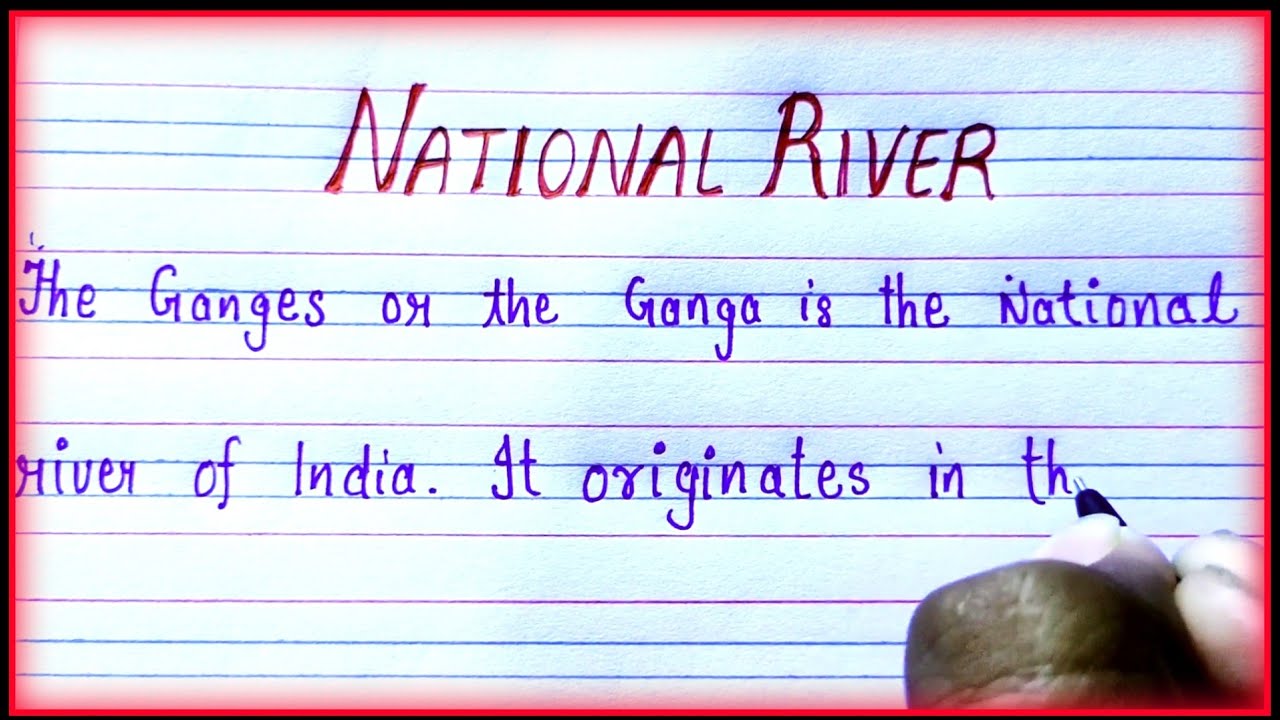 NATIONAL RIVER
The Ganges or the Ganga is the National
river of India. It originates in th